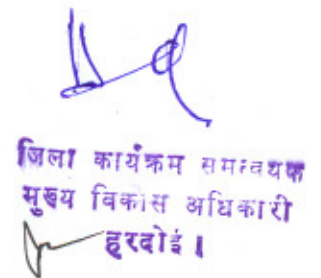 जिला कार्यक्रम समन्वयक
मुख्य विकास अधिकारी
हरदोई।